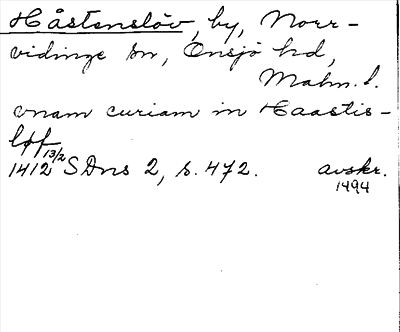 Håstenslöv, by, Norr-
vidinge sn, Onsjö hd,
Malm. l.
vnam curiam in Haastis-
løff
13/2
1412 SDns 2, s. 472. avskr.
1494